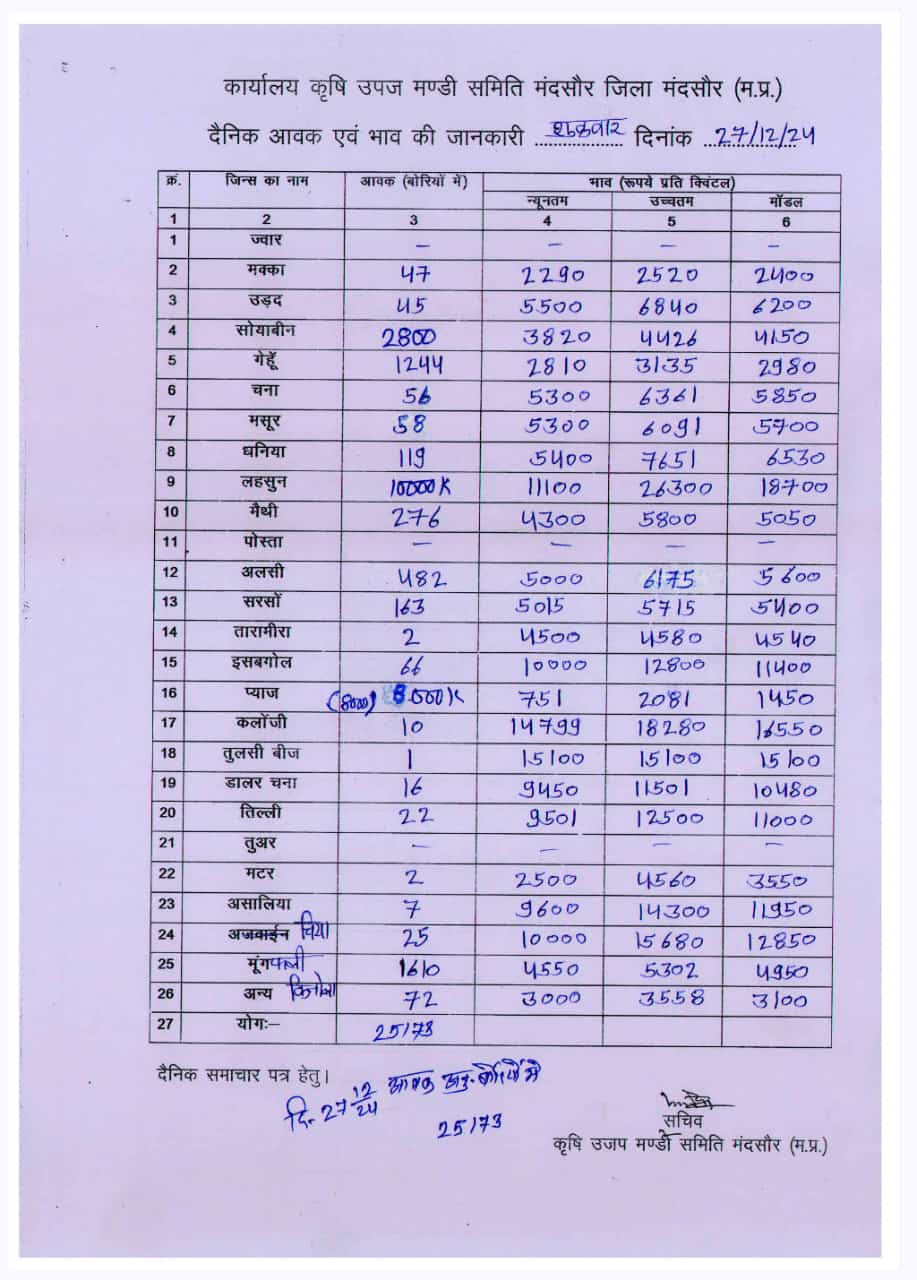 कार्यालय कृषि उपज मण्डी समिति मंदसौर जिला मंदसौर (म.प्र.)
दैनिक आवक एवं भाव की जानकारी शुक्रवार दिनांक 27/12/24
क्रं. जिन्स का नाम आवक (बोरियों में) भाव (रूपये प्रति क्विंटल)
न्यूनतम उच्चतम मॉडल
1 2 3 4 5 6
1 ज्वार – – – –
2 मक्का 47 2290 2520 2400
3 उड़द 45 5500 6840 6200
4 सोयाबीन 2800 3820 4426 4150
5 गेहूँ 1244 2810 3135 2980
6 चना 56 5300 6361 5850
7 मसूर 58 5300 6091 5700
8 धनिया 119 5400 7651 6530
9 लहसुन 10000K 11100 26300 18700
10 मैथी 276 4300 5800 5050
11 पोस्ता – – – –
12 अलसी 482 5000 6175 5600
13 सरसों 163 5015 5715 5400
14 तारामीरा 2 4500 4580 4540
15 इसबगोल 66 10000 12800 11400
16 प्याज (8000) 8000K 751 2081 1450
17 कलोंजी 10 14799 18280 16550
18 तुलसी बीज 1 15100 15100 15100
19 डालर चना 16 9450 11501 10480
20 तिल्ली 22 9501 12500 11000
21 तुअर – – – –
22 मटर 2 2500 4560 3550
23 असालिया 7 9600 14300 11950
24 अजवाईन चिया 25 10000 15680 12850
25 मूंगफली 1610 4550 5302 4950
26 अन्य किनोवा 72 3000 3558 3100
27 योगः– 25173
दैनिक समाचार पत्र हेतु।
दि. 27 12/24 आवक अनु. बोरियों में
25173
सचिव
कृषि उजप मण्डी समिति मंदसौर (म.प्र.)